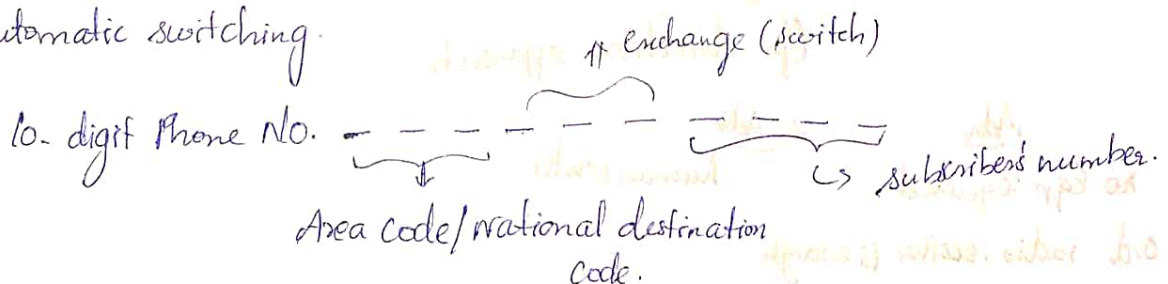 utomatic switching.
↑↑ exchange (switch)
10- digit Phone No. _ _ _ _ _ _ _ _ _ _
↳ subscriber's number.
Area code/national destination
code.